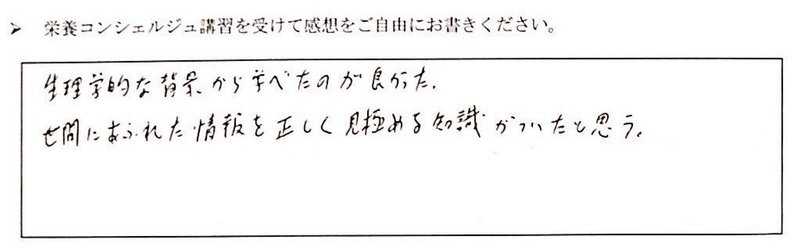 ➢ 栄養コンシェルジュ講習を受けて感想をご自由にお書きください。
生理学的な背景から学べたのが良かった.
世間にあふれた情報を正しく見極める知識がついたと思う.